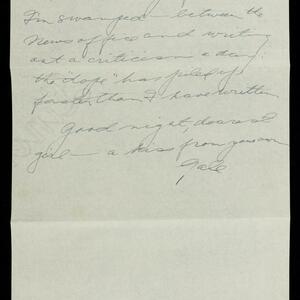 I'm swamped - between the
News office and writing
out a criticism a day.
the "dope" has piled up
faster than I have written
Good night, dearest
girl - a kiss from your own
Gale